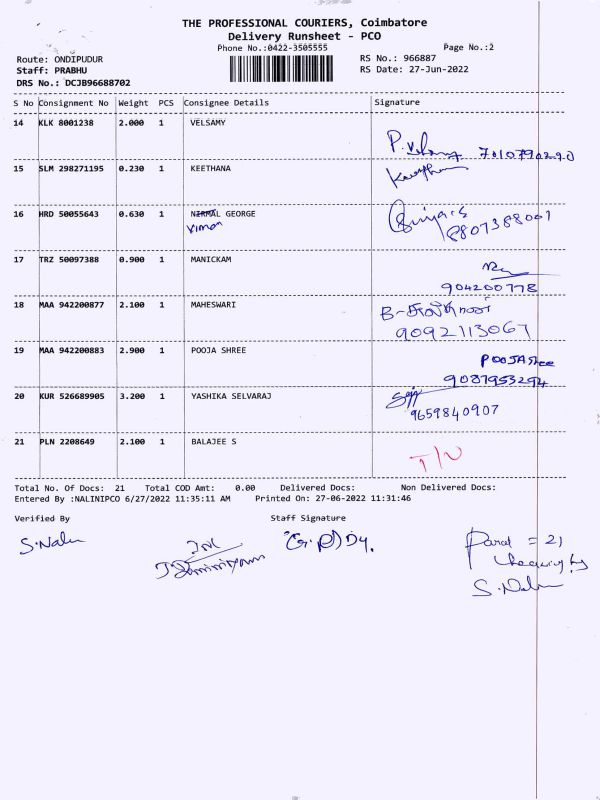 THE PROFESSIONAL COURIERS, Coimbatore
Delivery Runsheet - PCO
Phone No.:0422-3505555
Page No.:2
Route: ONDIPUDUR
RS No.: 966887
Staff: PRABHU
RS Date: 27-Jun-2022
DRS No.: DCJB96688702
S No Consignment No Weight PCS Consignee Details Signature
14 KLK 8001238 2.000 1 VELSAMY
15 SLM 298271195 0.230 1 KEETHANA
16 HRD 50055643 0.630 1 NIRMAL GEORGE
Viman
8807388001
17 TRZ 50097388 0.900 1 MANICKAM
904200778
18 MAA 942200877 2.100 1 MAHESWARI
9092113067
19 MAA 942200883 2.900 1 POOJA SHREE
POOJAShree
9087953294
20 KUR 526689905 3.200 1 YASHIKA SELVARAJ
9659840907
21 PLN 2208649 2.100 1 BALAJEE S
T/N
Total No. Of Docs: 21 Total COD Amt: 0.00 Delivered Docs: Non Delivered Docs:
Entered By :NALINIPCO 6/27/2022 11:35:11 AM Printed On: 27-06-2022 11:31:46
Verified By Staff Signature
S.Nalin
= 21
S.Nalin